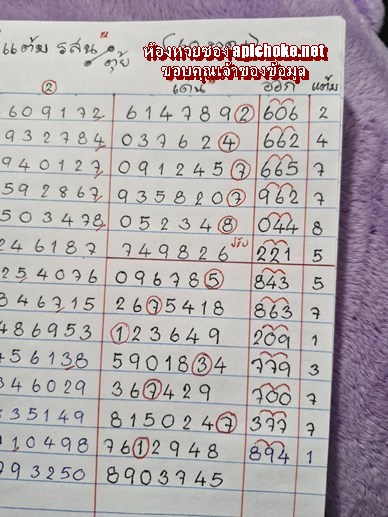 แต้ม รสน
ตุ้ย
ห้องหวยซอง apichoke.net
ขอบคุณเจ้าของข้อมูล
② เด่น ออก แต้ม
609172 6147892 606 2
932784 037624 662 4
940127 0912457 665 7
592867 9358207 962 7
503478 052348 044 8
246187 749826 ปรับ 221 5
254076 096785 843 5
846715 2675418 863 7
486953 123649 209 1
456138 5901834 779 3
346029 367429 700 7
835149 8150247 377 7
910498 7612948 894 1
793250 8903745